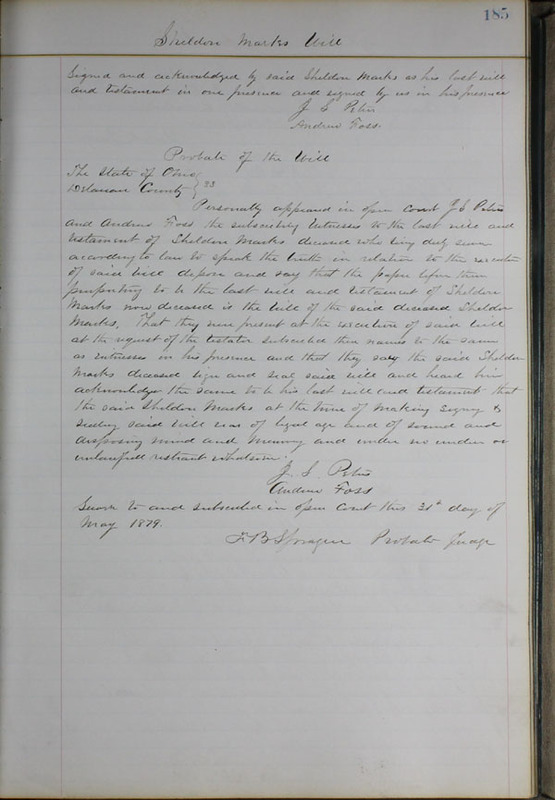 185
Sheldon Marks Will
Signed and acknowledged by said Sheldon Marks as his last will
and testament in our presence and signed by us in his presence
J. S. Peters
Andrew Foss.
Probate of the Will
The State of Ohio
Delaware County } SS
Personally appeared in open Court J. S. Peters
and Andrew Foss the subscribing witnesses to the last will and
testament of Sheldon Marks deceased who being duly sworn
according to law to speak the truth in relation to the execution
of said will depose and say that the paper before them
purporting to be the last will and testament of Sheldon
Marks now deceased is the will of the said deceased Sheldon
Marks, That they were present at the execution of said will
at the request of the testator subscribed their names to the same
as witnesses in his presence and that they saw the said Sheldon
Marks deceased sign and seal said will and heard him
acknowledge the same to be his last will and testament that
the said Sheldon Marks at the time of making signing &
sealing said will was of legal age and of sound and
disposing mind and memory and under no undue or
unlawfull restraint whatsoever.
J. S. Peters
Andrew Foss
Sworn to and subscribed in open Court this 31st day of
May 1879.
F B Sprague Probate Judge